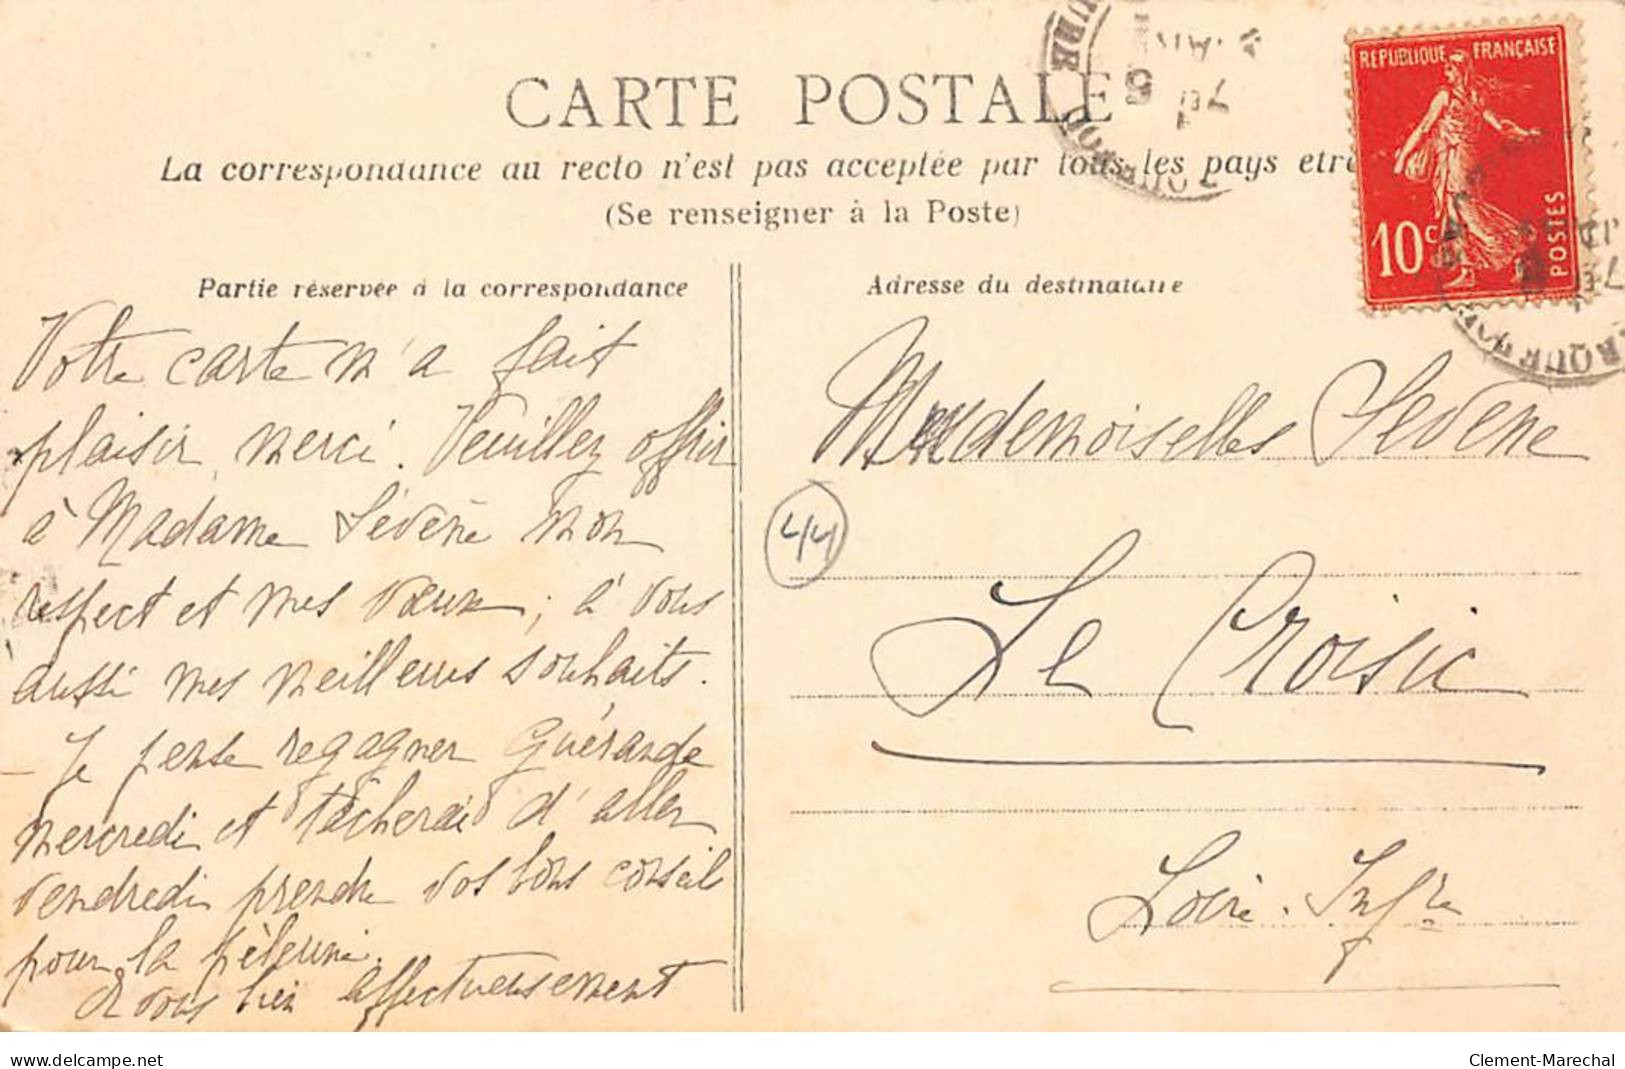 CARTE POSTALE
La correspondance au recto n'est pas acceptée par tous les pays etr
(Se renseigner à la Poste)
REPUBLIQUE FRANÇAISE
10c
POSTES
Partie réservée à la correspondance
Adresse du destinataire
Votre carte m'a fait
plaisir, merci. Veuillez offrir
à Madame Sévène mon
respect et mes vœux ; à vous
aussi mes meilleurs souhaits.
– Je pense regagner Guérande
mercredi et tâcherai d'aller
vendredi prendre vos bons conseils
pour la pèlerine.
A vous bien affectueusement
Mesdemoiselles Sevène
44
Le Croisic
Loire-Infre
www.delcampe.net
Clement-Marechal